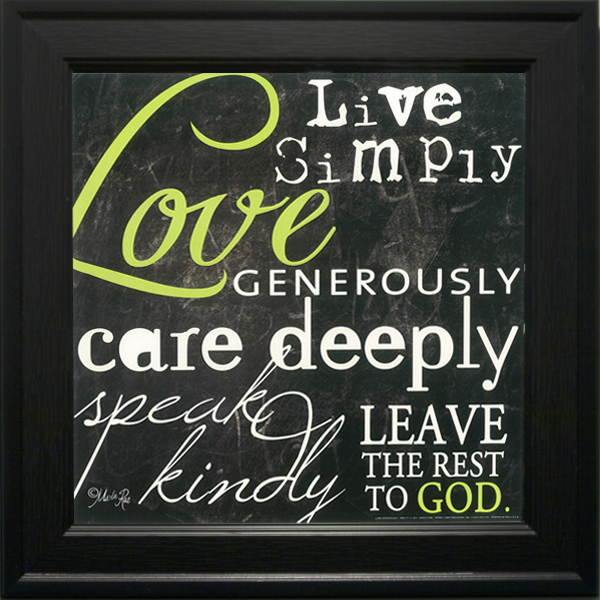 Live
Simply
Love
GENEROUSLY
care deeply
speak
kindly
LEAVE
THE REST
TO GOD.
©Marla Rae